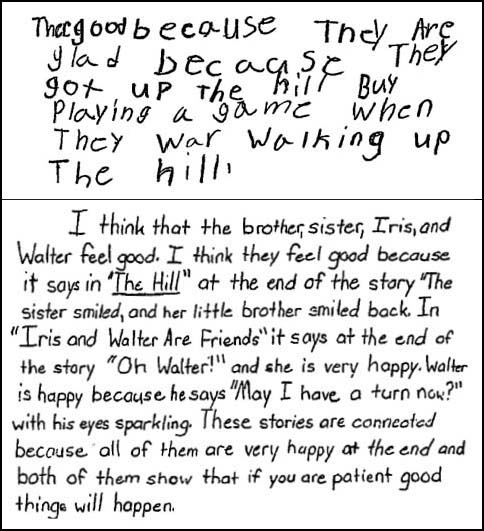 Ther good because They Are
glad because They
got up the hill Buy
Playing a game when
They war walking up
The hill.
I think that the brother, sister, Iris, and
Walter feel good. I think they feel good because
it says in "The Hill" at the end of the story "The
sister smiled, and her little brother smiled back. In
"Iris and Walter Are Friends" it says at the end of
the story "Oh Walter!" and she is very happy. Walter
is happy because he says "May I have a turn now?"
with his eyes sparkling. These stories are connected
because all of them are very happy at the end and
both of them show that if you are patient good
things will happen.